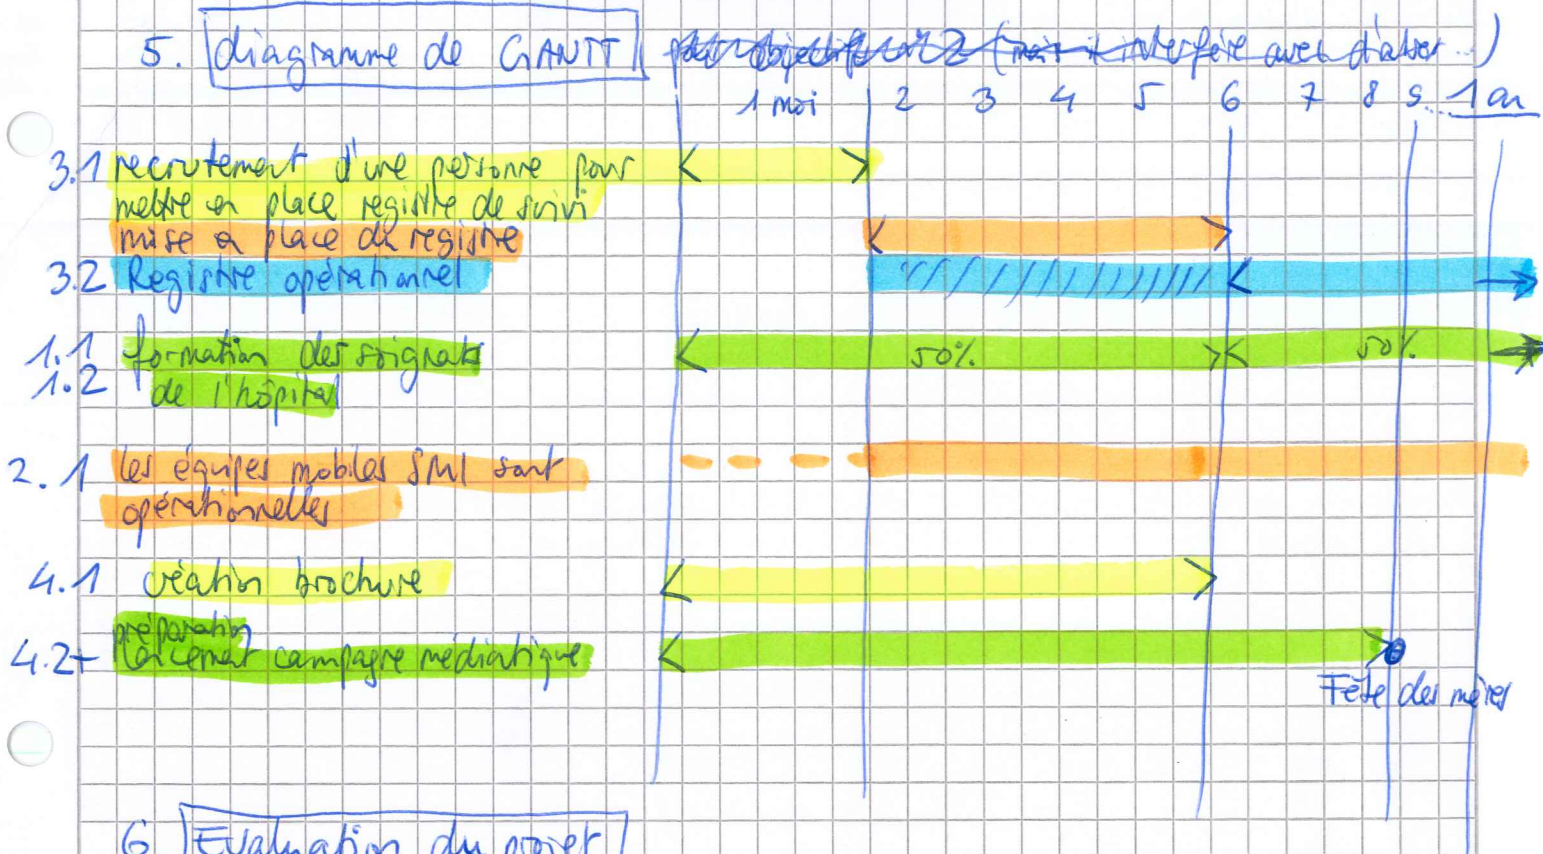 5. diagramme de GANTT par objectif n°2 (mais il interfère avec d'autres...)
1 moi 2 3 4 5 6 7 8 9... 1 an
3.1 recrutement d'une personne pour
mettre en place registre de suivi
mise en place du registre
3.2 Registre opérationnel
1.1 formation des soignants 50% 50%
1.2 de l'hôpital
2.1 les équipes mobiles SMI sont
opérationnelles
4.1 création brochure
préparation
4.2+ lancement campagne médiatique
Fête des mères
6 Evaluation du projet